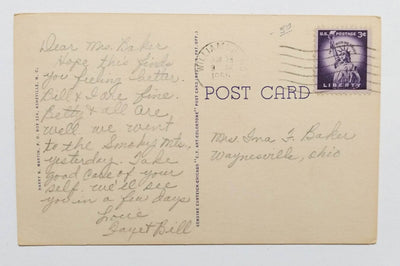 Dear Mrs. Baker
Hope this finds
you feeling better.
Bill & I are fine.
Betty & all are
well we went
to the Smoky Mts.
yesterday. Take
good care of your
self. we'll see
you in a few days
Love
Bill
POST CARD
U.S. POSTAGE 3¢
LIBERTY
Mrs Ina F. Baker
Waynesville, Ohio
HARRY M. MARTIN, P. O. BOX 324, ASHEVILLE, N. C.
GENUINE CURTEICH-CHICAGO "C.T. ART-COLORTONE" POST CARD